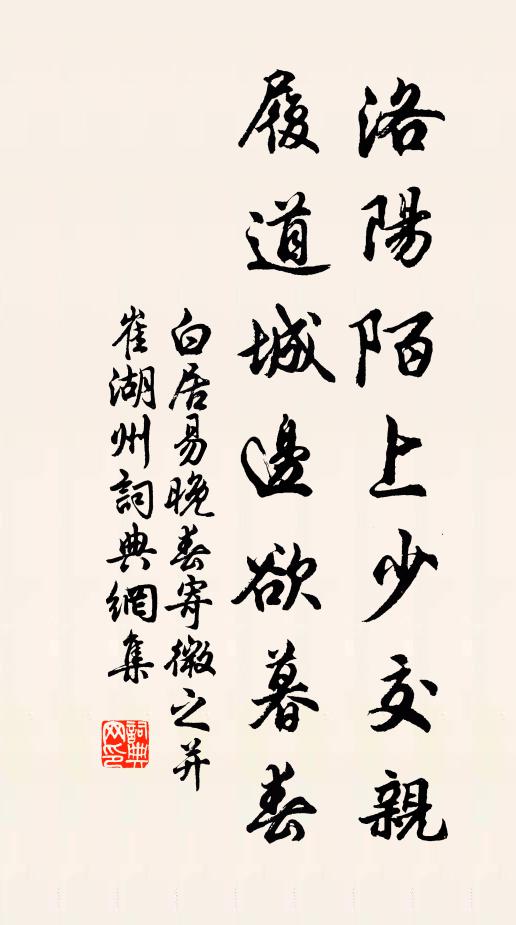 洛陽陌上少交親
履道城邊欲暮春
白居易晚春寄微之并
崔湖州詞典網集
詞典網印